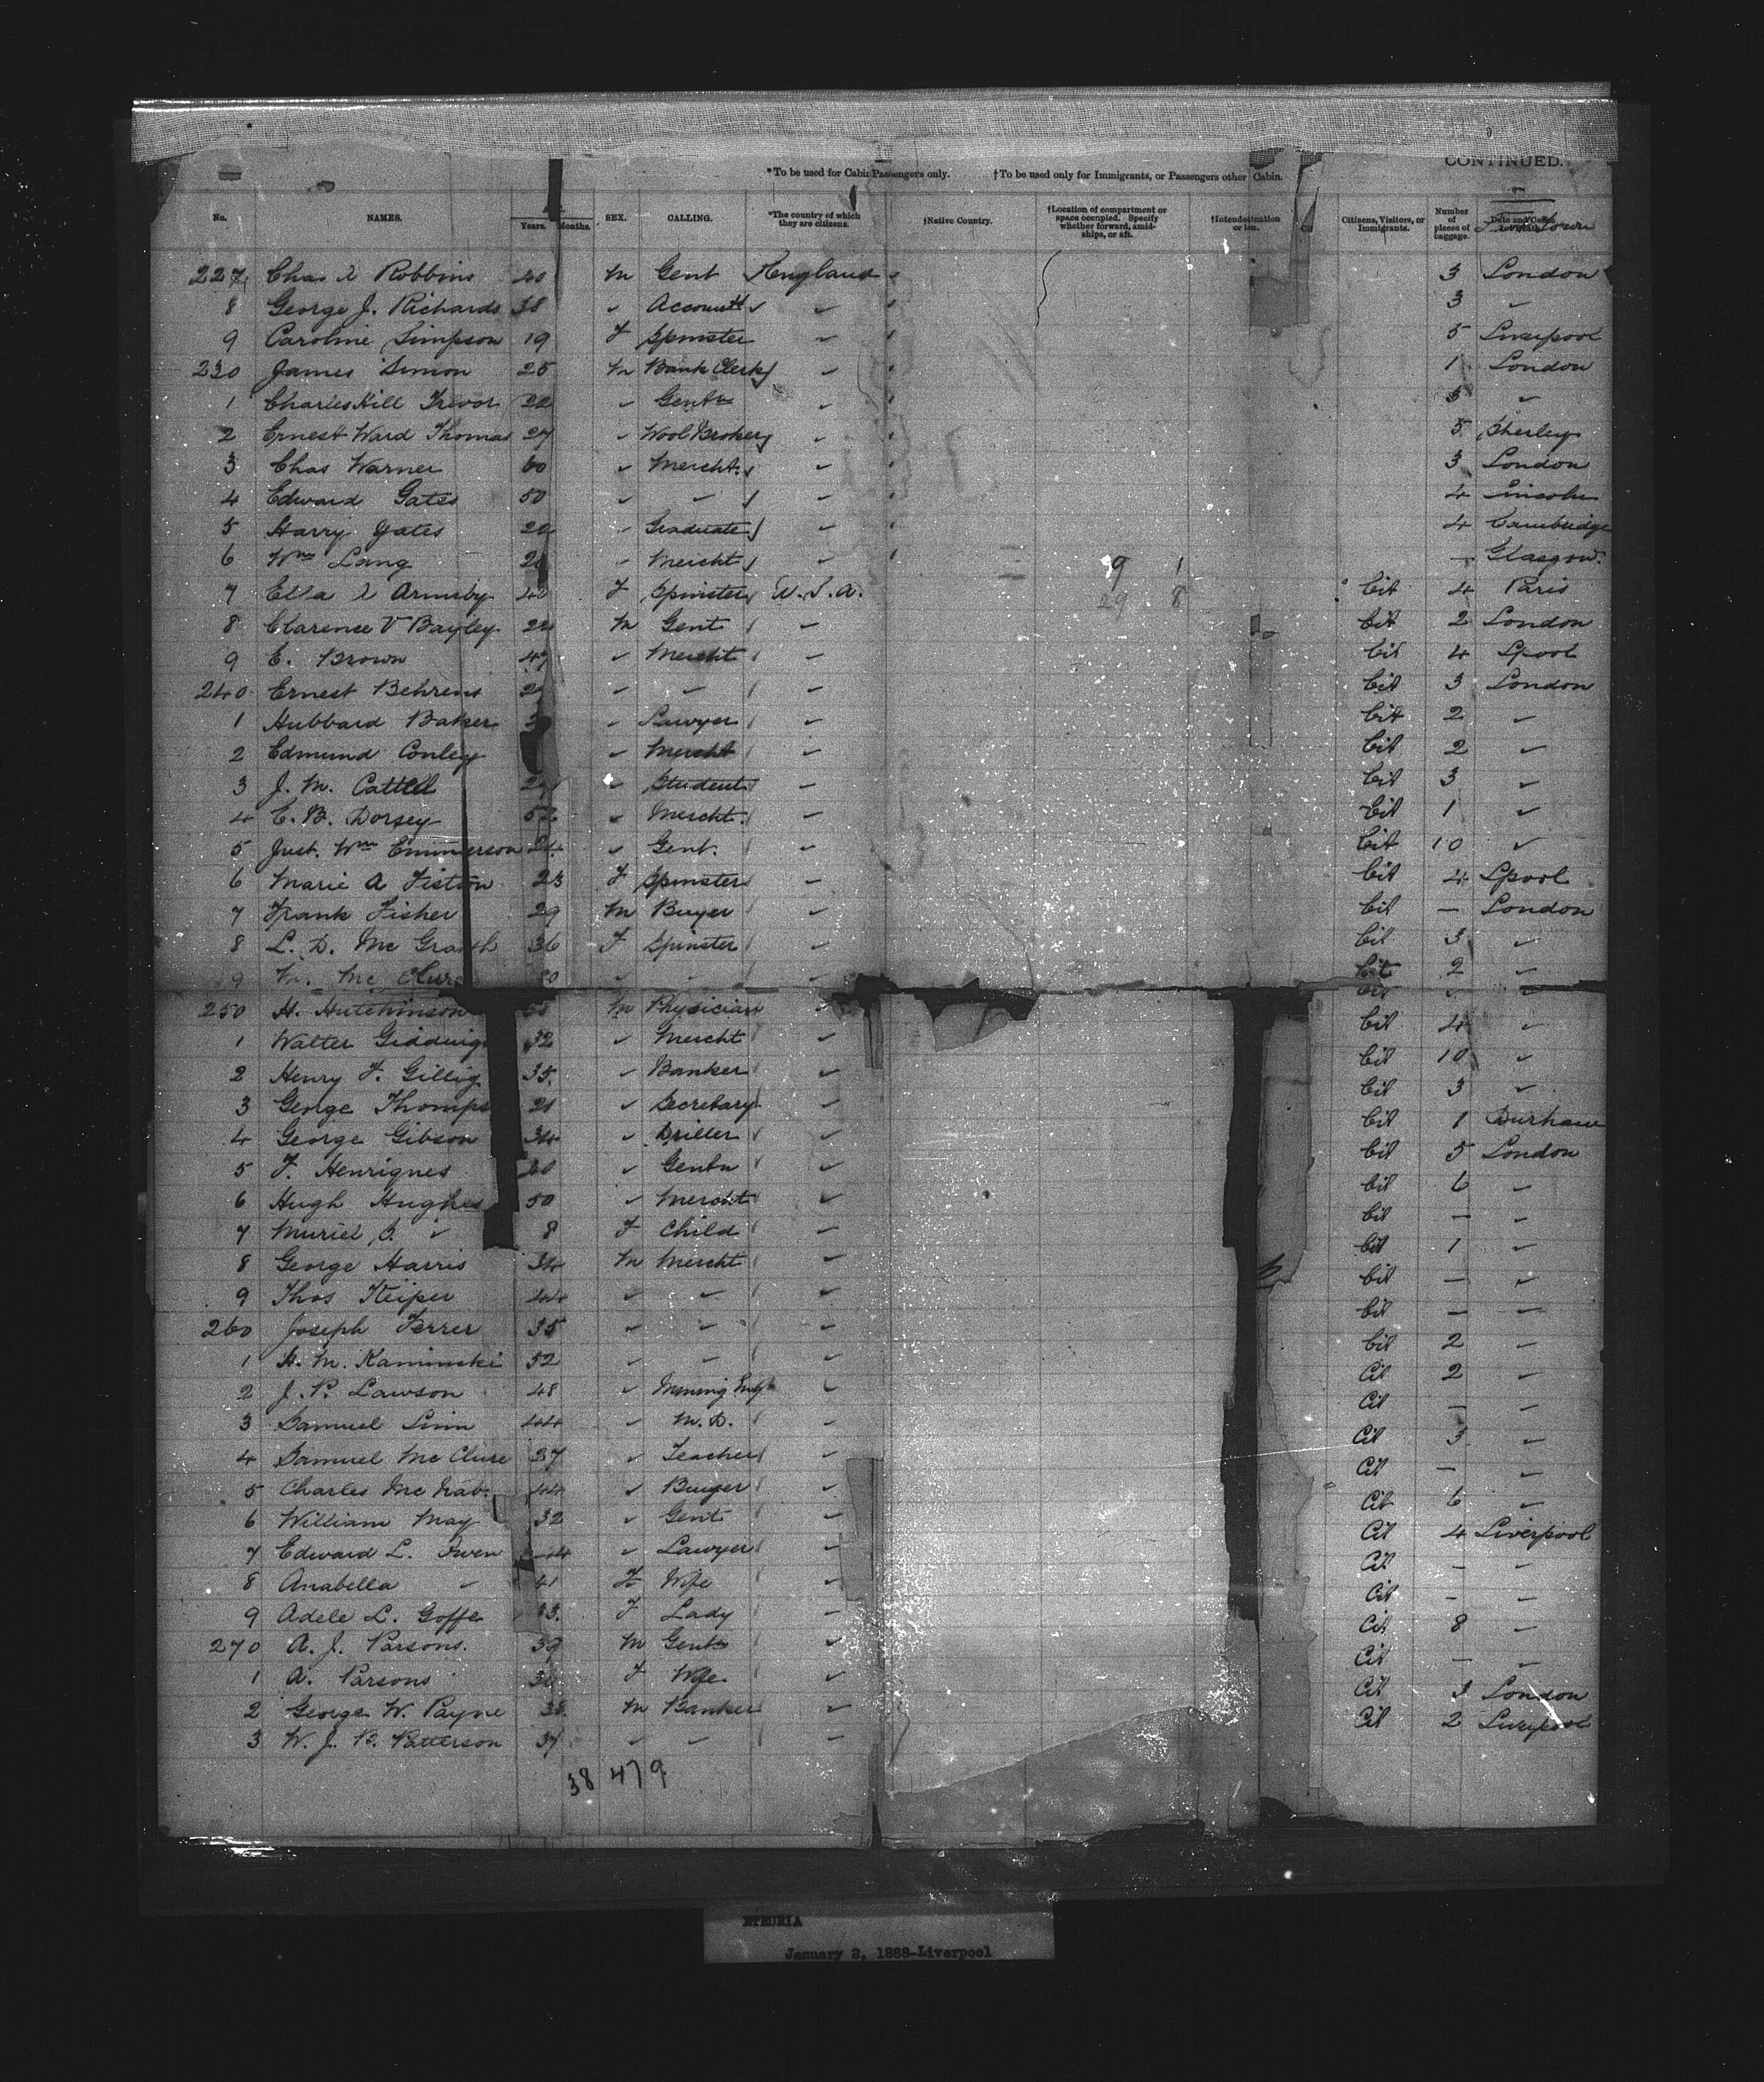 CONTINUED.
*To be used for Cabin Passengers only. †To be used only for Immigrants, or Passengers other Cabin.
No. NAMES. Years. Months. SEX. CALLING. *The country of which they are citizens. †Native Country. †Location of compartment or space occupied. Specify whether forward, amidships, or aft. †Intended destination or Citizens, Visitors, or Immigrants. Number of pieces of baggage. Date and Cause
227 Chas Robbins 40 M Gent England 3 London
8 George J. Richards 38 ✓ Accountt ✓ 3 ✓
9 Caroline Simpson 19 F Spinster ✓ 5 Liverpool
230 James Simon 25 M Bank Clerk ✓ 1 London
1 Charles Hill Trevor 22 ✓ Gentn ✓ 3 ✓
2 Ernest Ward Thomas 27 ✓ Wool Broker ✓ 5
3 Chas Warner 60 ✓ Mercht. ✓ 3 London
4 Edward Gates 50 ✓ ✓ ✓ 4 Lincoln
5 Harry Gates ✓ Graduate ✓ 4 Cambridge
6 Wm Lang ✓ Mercht ✓ 9 1 — Glasgow.
7 Ella Armsby F Spinster U.S.A. 29 8 Cit 4 Paris
8 Clarence V Bayley M Gent ✓ Cit 2 London
9 E. Brown 47 ✓ Mercht ✓ Cit 4 Lpool
240 Ernest Behrens ✓ ✓ ✓ Cit 3 London
1 Hubbard Baker ✓ Lawyer ✓ Cit 2 ✓
2 Edmund Conley ✓ Mercht ✓ Cit 2 ✓
3 J. M. Cattell ✓ Student ✓ Cit 3 ✓
4 E. B. Dorsey 52 ✓ Mercht. ✓ Cit 1 ✓
5 Just. Wm Emmerson 24 ✓ Gent. ✓ Cit 10 ✓
6 Marie A Fiston 23 F Spinster ✓ Cit 4 Lpool
7 Frank Fisher 29 M Buyer ✓ Cit — London
8 L. D. Mc Grath 36 F Spinster ✓ Cit 3 ✓
9 Mc Clure ✓ ✓ ✓ Cit 2 ✓
250 H. Hutchinson M Physician ✓ Cit ✓ ✓
1 Walter Giddings 32 ✓ Mercht ✓ Cit 4 ✓
2 Henry F. Gillig 35. ✓ Banker ✓ Cit 10 ✓
3 George Thomps 21 ✓ Secretary ✓ Cit 3 ✓
4 George Gibson 34 ✓ Driller ✓ Cit 1 Durham
5 F. Henriques ✓ Gentn ✓ Cit 5 London
6 Hugh Hughes 50 ✓ Mercht ✓ Cit 6 ✓
7 Muriel B. ✓ 8 F Child ✓ Cit — ✓
8 George Harris 34 M Mercht ✓ Cit 1 ✓
9 Thos Keiper 44 ✓ ✓ ✓ Cit — ✓
260 Joseph Ferrer 35 ✓ ✓ ✓ Cit — ✓
1 H. M. Kaminski 52 ✓ ✓ ✓ Cit 2 ✓
2 J. P. Lawson 48 ✓ Mining Eng ✓ Cit 2 ✓
3 Samuel Linn 44 ✓ M.D. ✓ Cit — ✓
4 Samuel Mc Clure 37 ✓ Teacher ✓ Cit 3 ✓
5 Charles Mc Nab 44 ✓ Buyer ✓ Cit — ✓
6 William May 32 ✓ Gent ✓ Cit 6 ✓
7 Edward L. Owen ✓ Lawyer ✓ Cit 4 Liverpool
8 Anabella ✓ 41 F Wife ✓ Cit — ✓
9 Adele L. Goffe 33. F Lady ✓ Cit — ✓
270 A. J. Parsons. 39 M Gentn ✓ Cit 8 ✓
1 A. Parsons F Wife ✓ Cit — ✓
2 George W. Payne 38. M Banker ✓ Cit 3 London
3 W. J. P. Patterson 37 ✓ ✓ ✓ Cit 2 Liverpool
38 479
ETRURIA
January 2, 1888-Liverpool